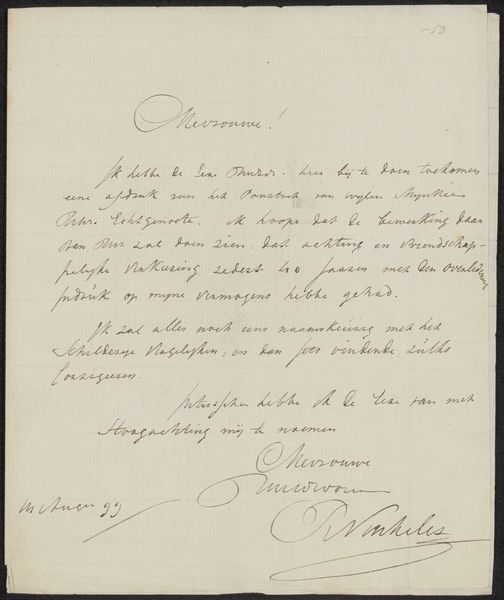 -53
Mevrouwe!
Ik hebbe de Eere hier bij te doen toekomen
eene afdruk van het Pourtret van wylen Mynheer
Echtgenoote. ik hoope dat de bewerking daar
van zal doen zien, dat achting en vriendschap-
pelyke verkeering zedert 40 jaaren met den overledenen
indruk op myne vermogens hebbe gehad.
Ik zal alles nog eens naauwkeurig met het
Schilderye vergelyken, en dan iets vindende, zulks
Corrigeeren.
hebbe ik de Eere van met
Hoogachting mij te noemen
Mevrouwe
R Vinkeles
99